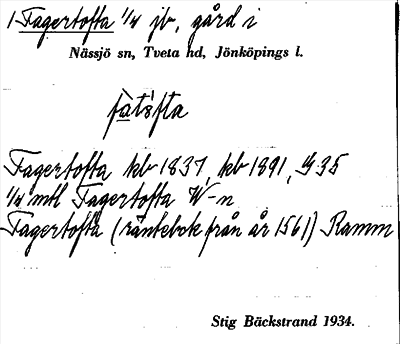 1 Fagertofta 1/4 jb, gård i
Nässjö sn, Tveta hd, Jönköpings l.
fàtsfta
Fagertofta kb 1837, kb 1891, G 35
1/4 mtl Fagertofta W-n
Fagertofta (räntebok från år 1561) Ramm
Stig Bäckstrand 1934.